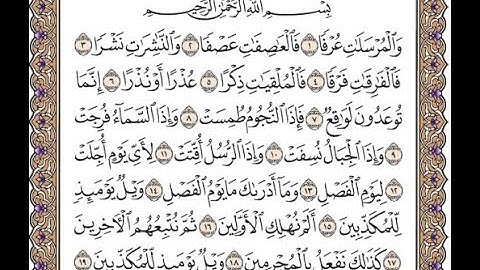 بِسْمِ اللَّهِ الرَّحْمَٰنِ الرَّحِيمِ
وَالْمُرْسَلَاتِ عُرْفًا ١ فَالْعَاصِفَاتِ عَصْفًا ٢ وَالنَّاشِرَاتِ نَشْرًا ٣
فَالْفَارِقَاتِ فَرْقًا ٤ فَالْمُلْقِيَاتِ ذِكْرًا ٥ عُذْرًا أَوْ نُذْرًا ٦ إِنَّمَا
تُوعَدُونَ لَوَاقِعٌ ٧ فَإِذَا النُّجُومُ طُمِسَتْ ٨ وَإِذَا السَّمَاءُ فُرِجَتْ
٩ وَإِذَا الْجِبَالُ نُسِفَتْ ١٠ وَإِذَا الرُّسُلُ أُقِّتَتْ ١١ لِأَيِّ يَوْمٍ أُجِّلَتْ
١٢ لِيَوْمِ الْفَصْلِ ١٣ وَمَا أَدْرَاكَ مَا يَوْمُ الْفَصْلِ ١٤ وَيْلٌ يَوْمَئِذٍ
لِّلْمُكَذِّبِينَ ١٥ أَلَمْ نُهْلِكِ الْأَوَّلِينَ ١٦ ثُمَّ نُتْبِعُهُمُ الْآخِرِينَ
١٧ كَذَٰلِكَ نَفْعَلُ بِالْمُجْرِمِينَ ١٨ وَيْلٌ يَوْمَئِذٍ لِّلْمُكَذِّبِينَ ١٩